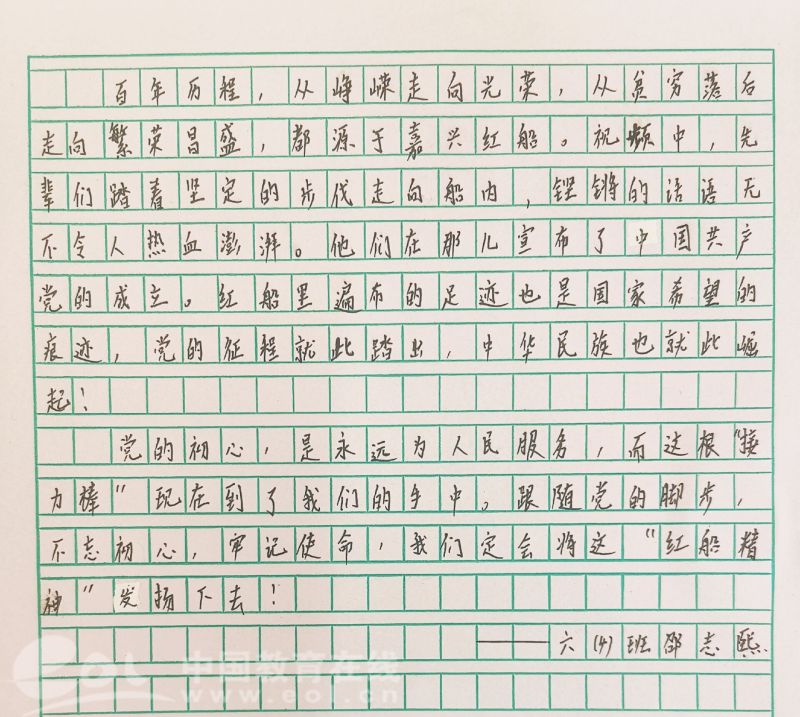 百年历程，从峥嵘走向光荣，从贫穷落后
走向繁荣昌盛，都源于嘉兴红船。视频中，先
辈们踏着坚定的步伐走向船内，铿锵的话语无
不令人热血澎湃。他们在那儿宣布了中国共产
党的成立。红船里遍布的足迹也是国家希望的
痕迹，党的征程就此踏出，中华民族也就此崛
起！
党的初心，是永远为人民服务，而这根“接
力棒”现在到了我们的手中。跟随党的脚步，
不忘初心，牢记使命，我们定会将这“红船精
神”发扬下去！
——六（4）班邵志熙
eol 中国教育在线
www.eol.cn